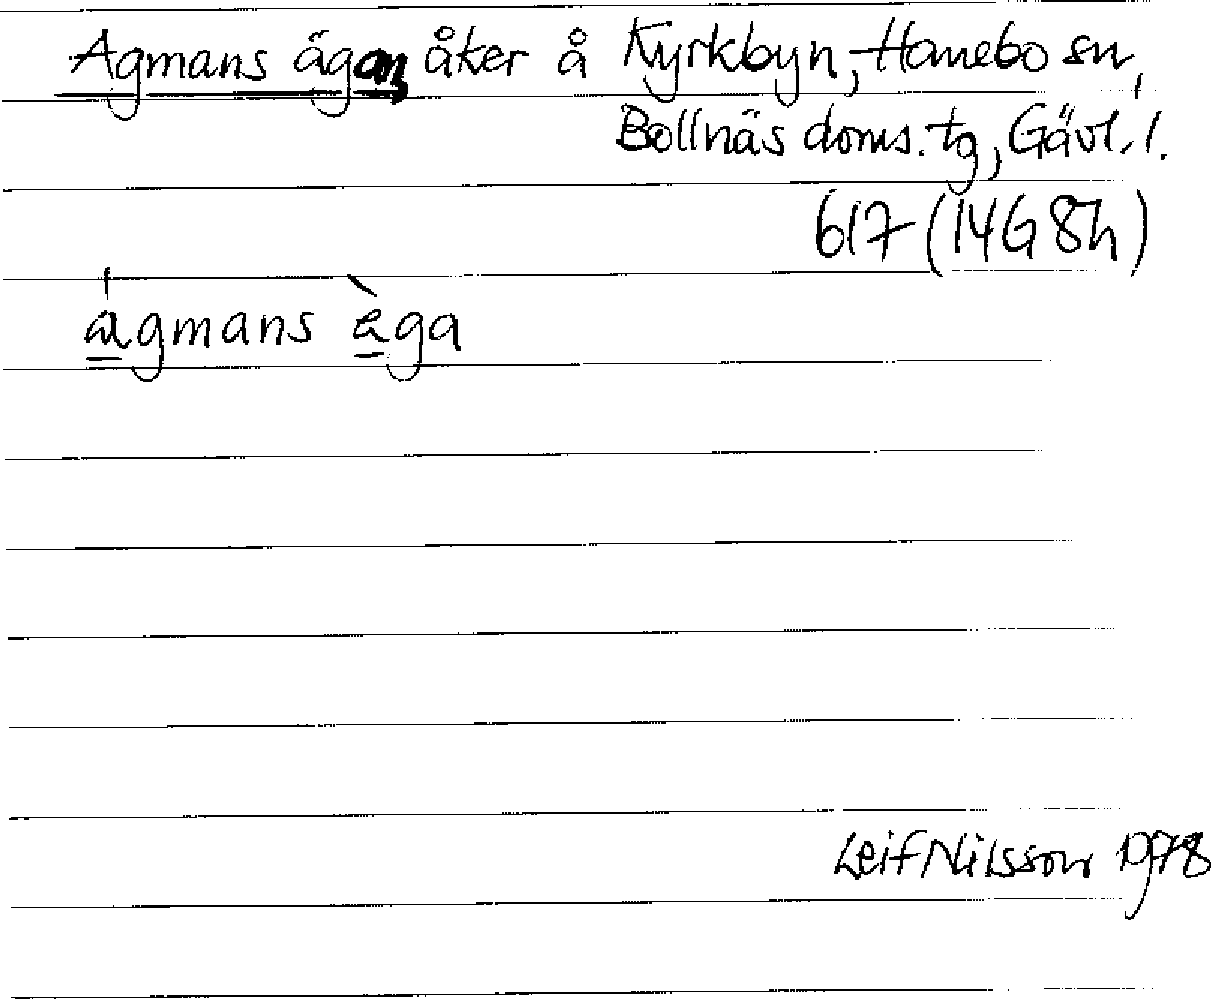 Agmans ägan, åker å Kyrkbyn, Hanebo sn,
Bollnäs doms. tg, Gävl. l.
617 (14G 8h)
agmans ega
Leif Nilsson 1978